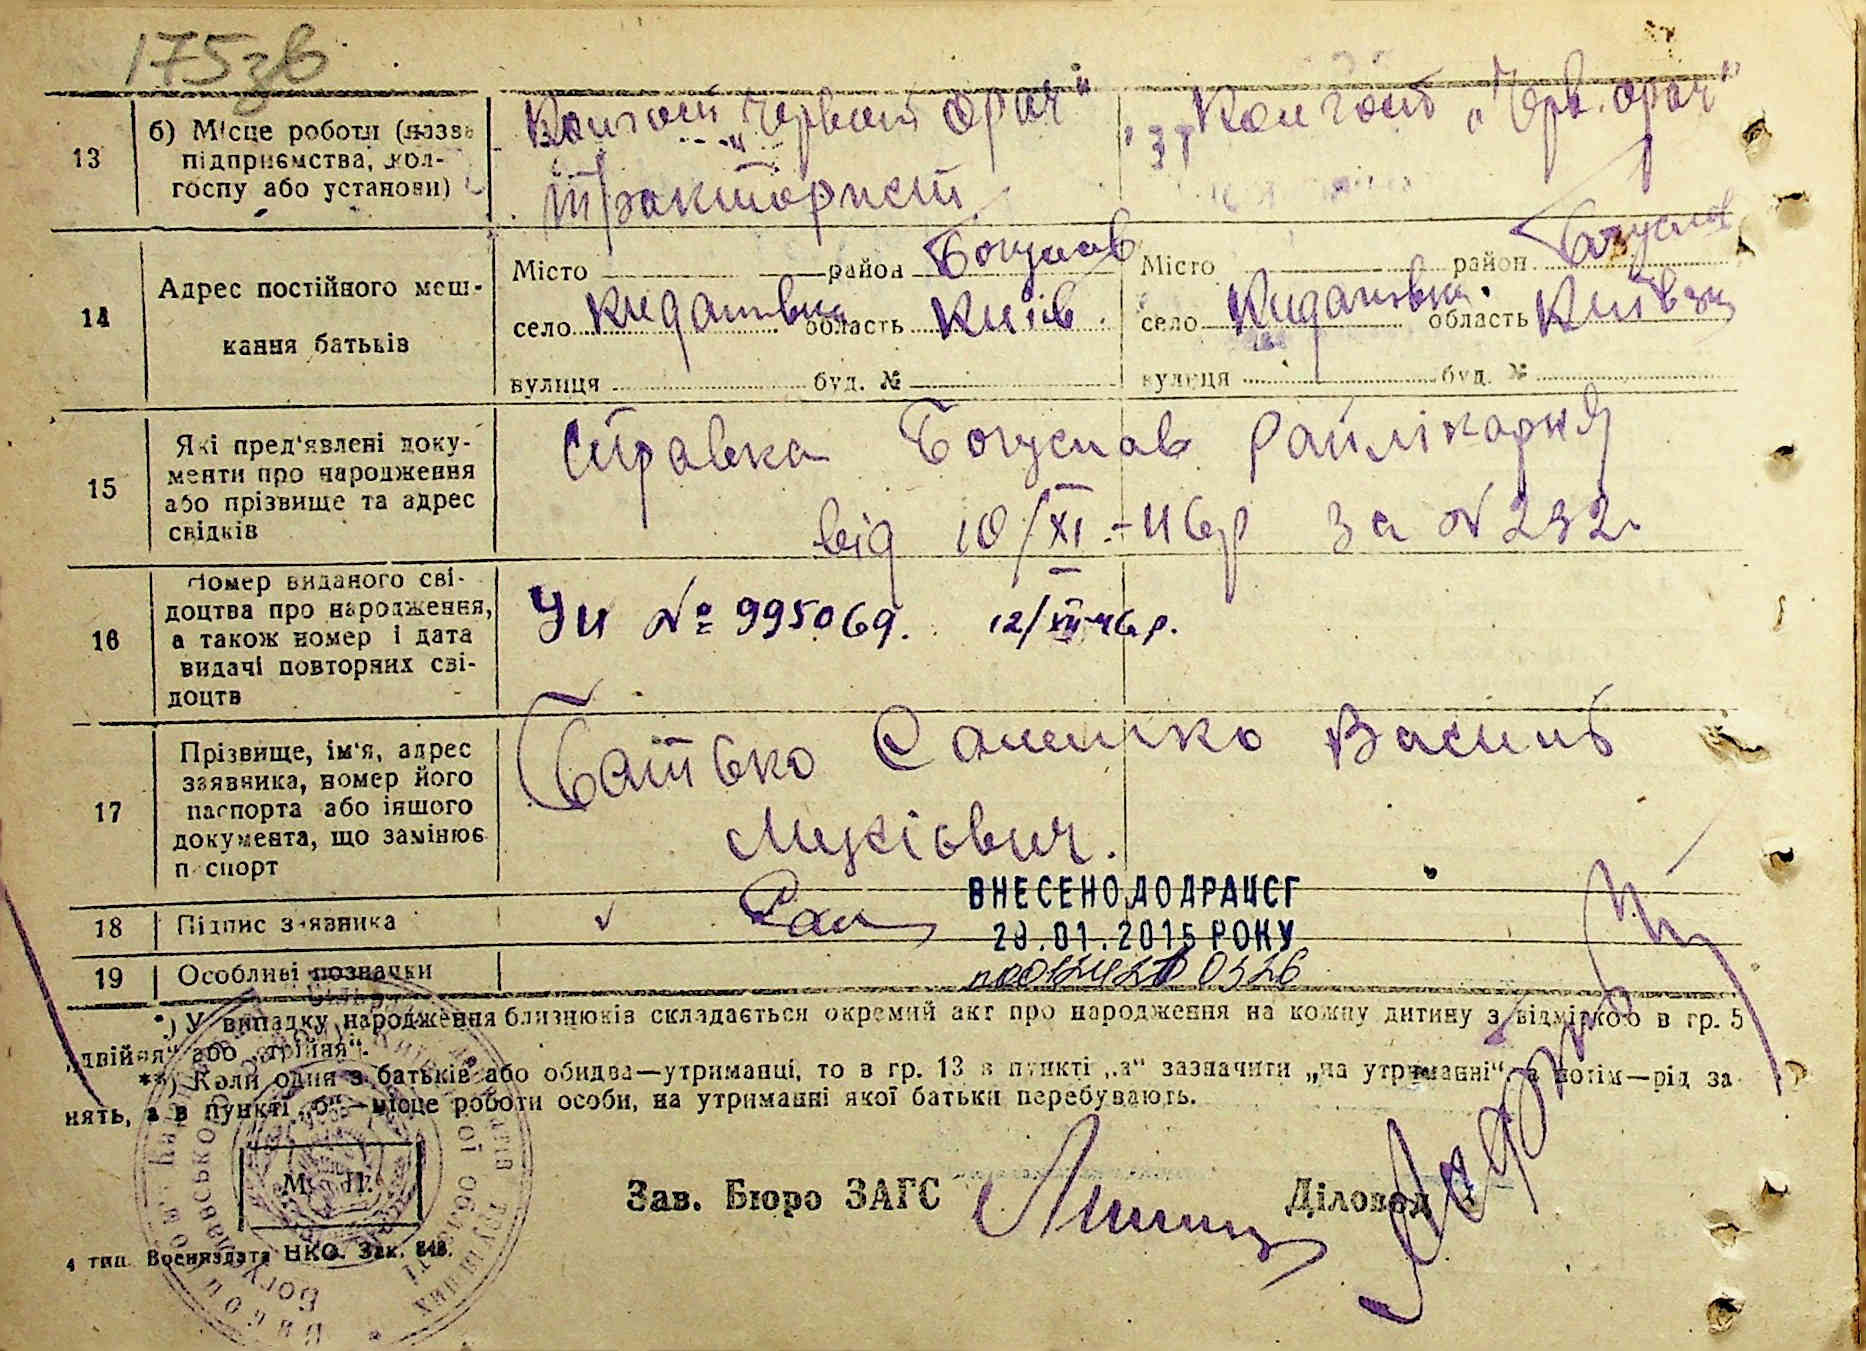 175зв
13 б) Місце роботи (назва підприємства, колгоспу або установи)
Колгосп „Червон орач"
тракторист
Колгосп „Черв. орач"
14 Адрес постійного мешкання батьків
Місто район Богуслав Місто район Богуслав
село Кидановка область Київ село Кидановка область Київ
вулиця буд. № вулиця буд. №
15 Які пред'явлені документи про народження або прізвище та адрес свідків
Справка Богуслав Райлікарня
від 10/XI-46р за №232
16 Номер виданого свідоцтва про народження, а також номер і дата видачі повторних свідоцтв
№ 995069. 12/XII-46р.
17 Прізвище, ім'я, адрес заявника, номер його паспорта або іншого документа, що замінює п спорт
Батько Василь
18 Підпис заявника
ВНЕСЕНО ДО ДРАЦСГ
2015 РОКУ
19 Особливі позначки
*) У випадку народження близнюків складається окремий акт про народження на кожну дитину з відміткою в гр. 5
„двійня" або „трійня".
**) Коли один з батьків або обидва—утриманці, то в гр. 13 в пункті „а" зазначити „на утриманні", а потім—рід за
нять, а в пункті „б"—місце роботи особи, на утриманні якої батьки перебувають.
М. П.
Зав. Бюро ЗАГС Діловод
4 тип. Воениздата НКО. Зак. 848.